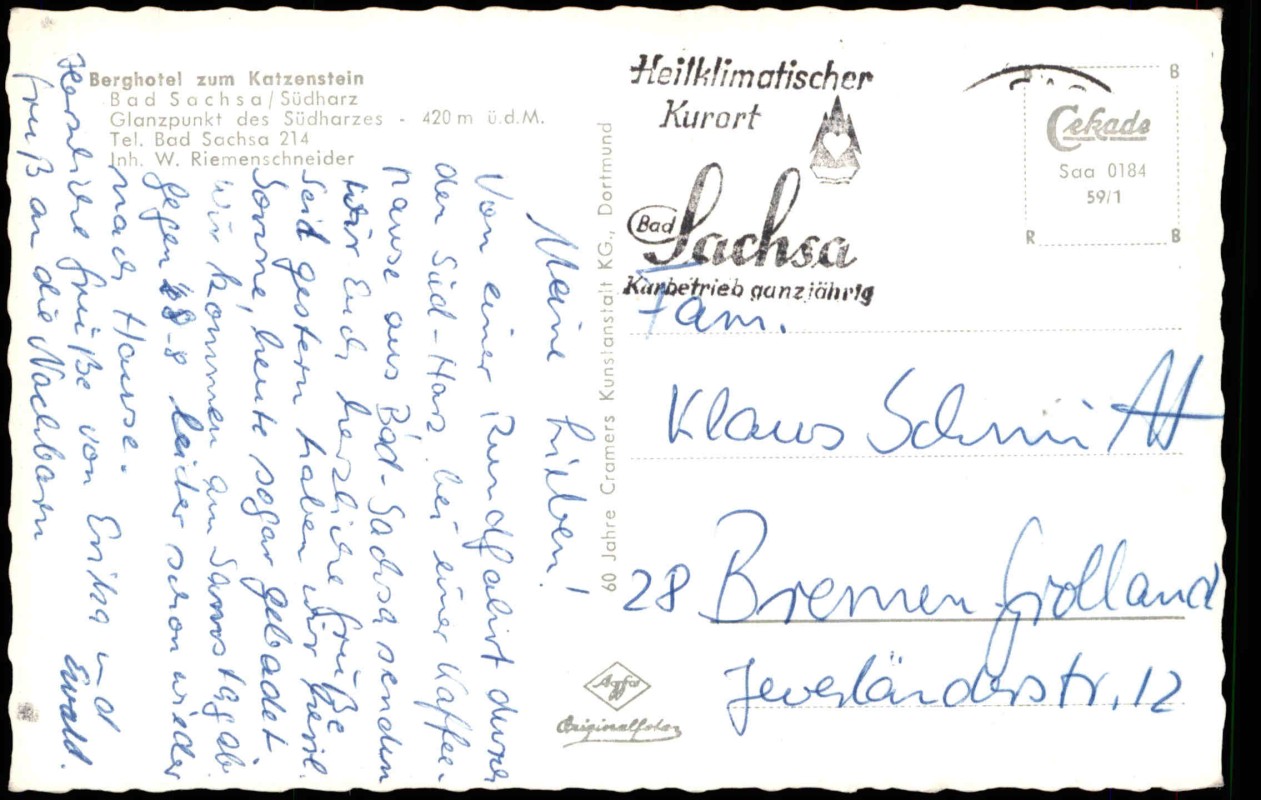 Berghotel zum Katzenstein
Bad Sachsa/Südharz
Glanzpunkt des Südharzes - 420 m ü.d.M.
Tel. Bad Sachsa 214
Inh. W. Riemenschneider
Meine Lieben!
Von einer Rundfahrt durch
den Süd-Harz, bei einer Kaffee-
pause aus Bad-Sachsa senden
wir Euch herzliche Grüße
Seid gestern haben wir herrl.
Sonne, heute sogar gebadet.
Wir kommen am Samstag ab.
gegen 8 leider schon wieder
nach Hause.
Herzliche Grüße von Erika und Ewald.
Gruß an die Nachbarn
60 Jahre Cramers Kunstanstalt KG., Dortmund
Agfa
Originalfoto
Heilklimatischer
Kurort
Bad Sachsa
Kurbetrieb ganzjährig
R B
Cekade
Saa 0184
59/1
R B
Fam.
Klaus Schmitt
28 Bremen Grolland
Jeverländerstr. 12